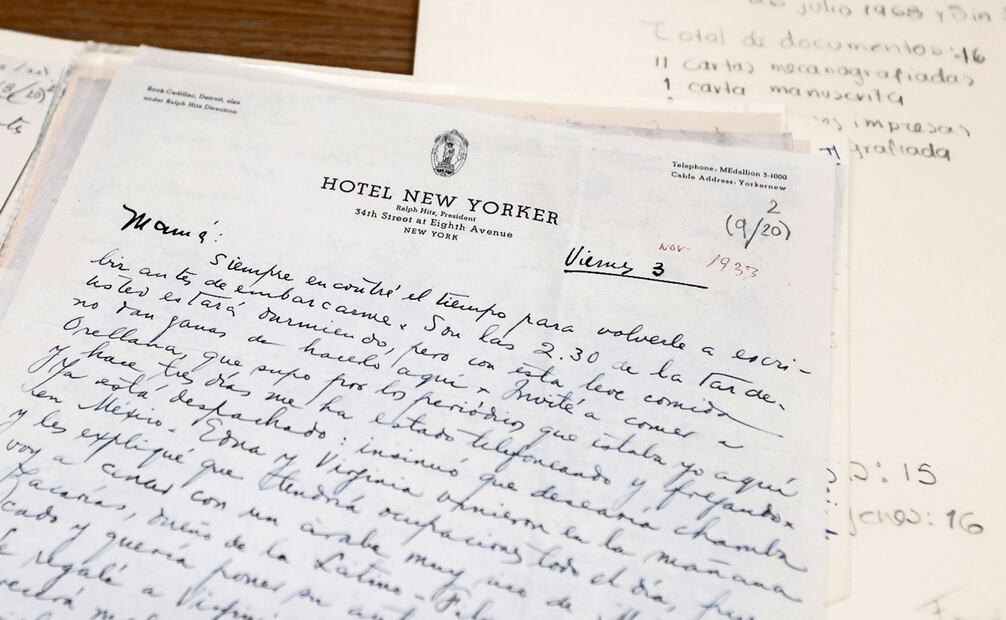 julio 1968 y Sin
Total de documentos: 16
11 cartas mecanografiadas
1 carta manuscrita
impresas
grafiada
Book-Cadillac, Detroit, also
under Ralph Hitz Direction
Telephone: MEdallion 3-1000
Cable Address: Yorkernew
2
(9/20)
HOTEL NEW YORKER
Ralph Hitz, President
34th Street at Eighth Avenue
NEW YORK
Mamá:
Viernes 3 NOV- 1933
Siempre encontré el tiempo para volverle a escri-
bir antes de embarcarme. Son las 2.30 de la tarde.
usted estará durmiendo, pero con esta leve comida
no dan ganas de hacerlo aquí. Invité a comer a
Orellana, que supo por los periódicos que estaba yo aquí
y hace tres días me ha estado telefoneando y fregando.
Ya está despachado: insinuó que desearía chamba
en México. Edna y Virginia vinieron en la mañana
y les expliqué que tendría ocupaciones todo el día, pues
voy a cenar con un árabe muy
Zacarías, dueño de la Latino-
cado y quería poner su
regalé a
15
16